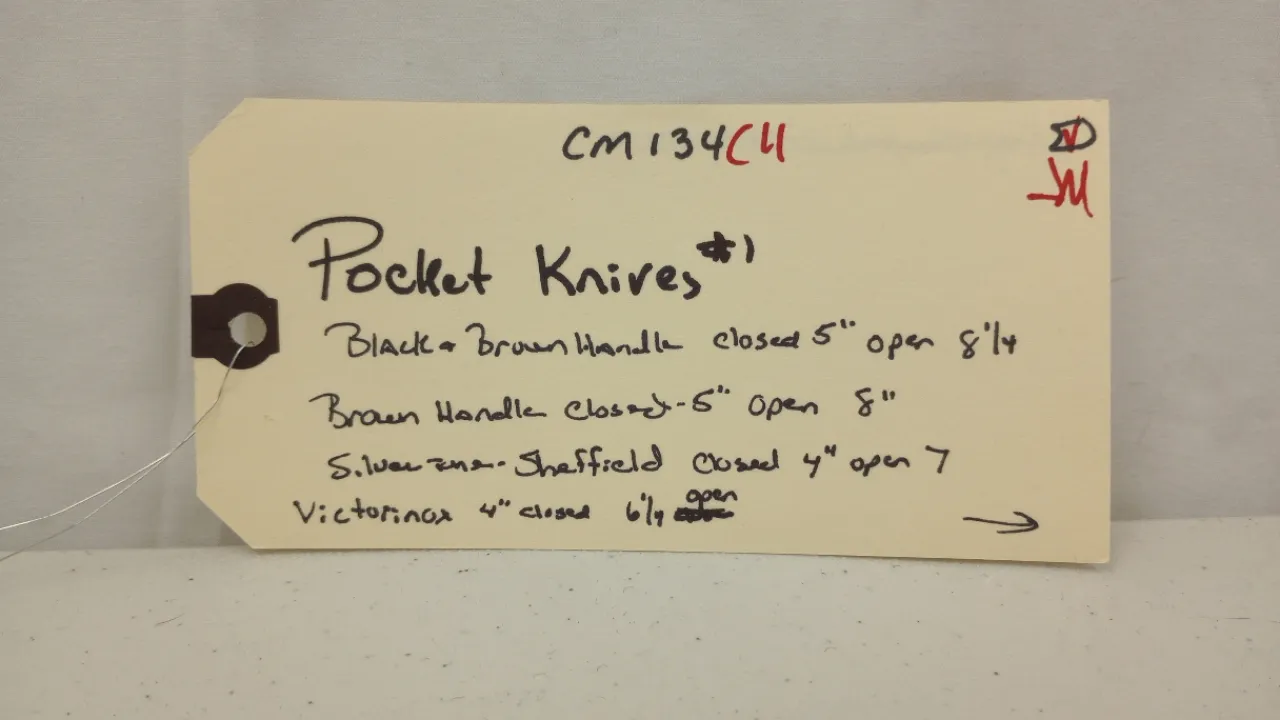 CM134CH
Pocket Knives #1
Black & Brown Handle closed 5" open 8 1/4
Brown Handle Closed-5" Open 8"
Silver - Sheffield Closed 4" open 7
Victorinox 4" closed 6 1/4 open